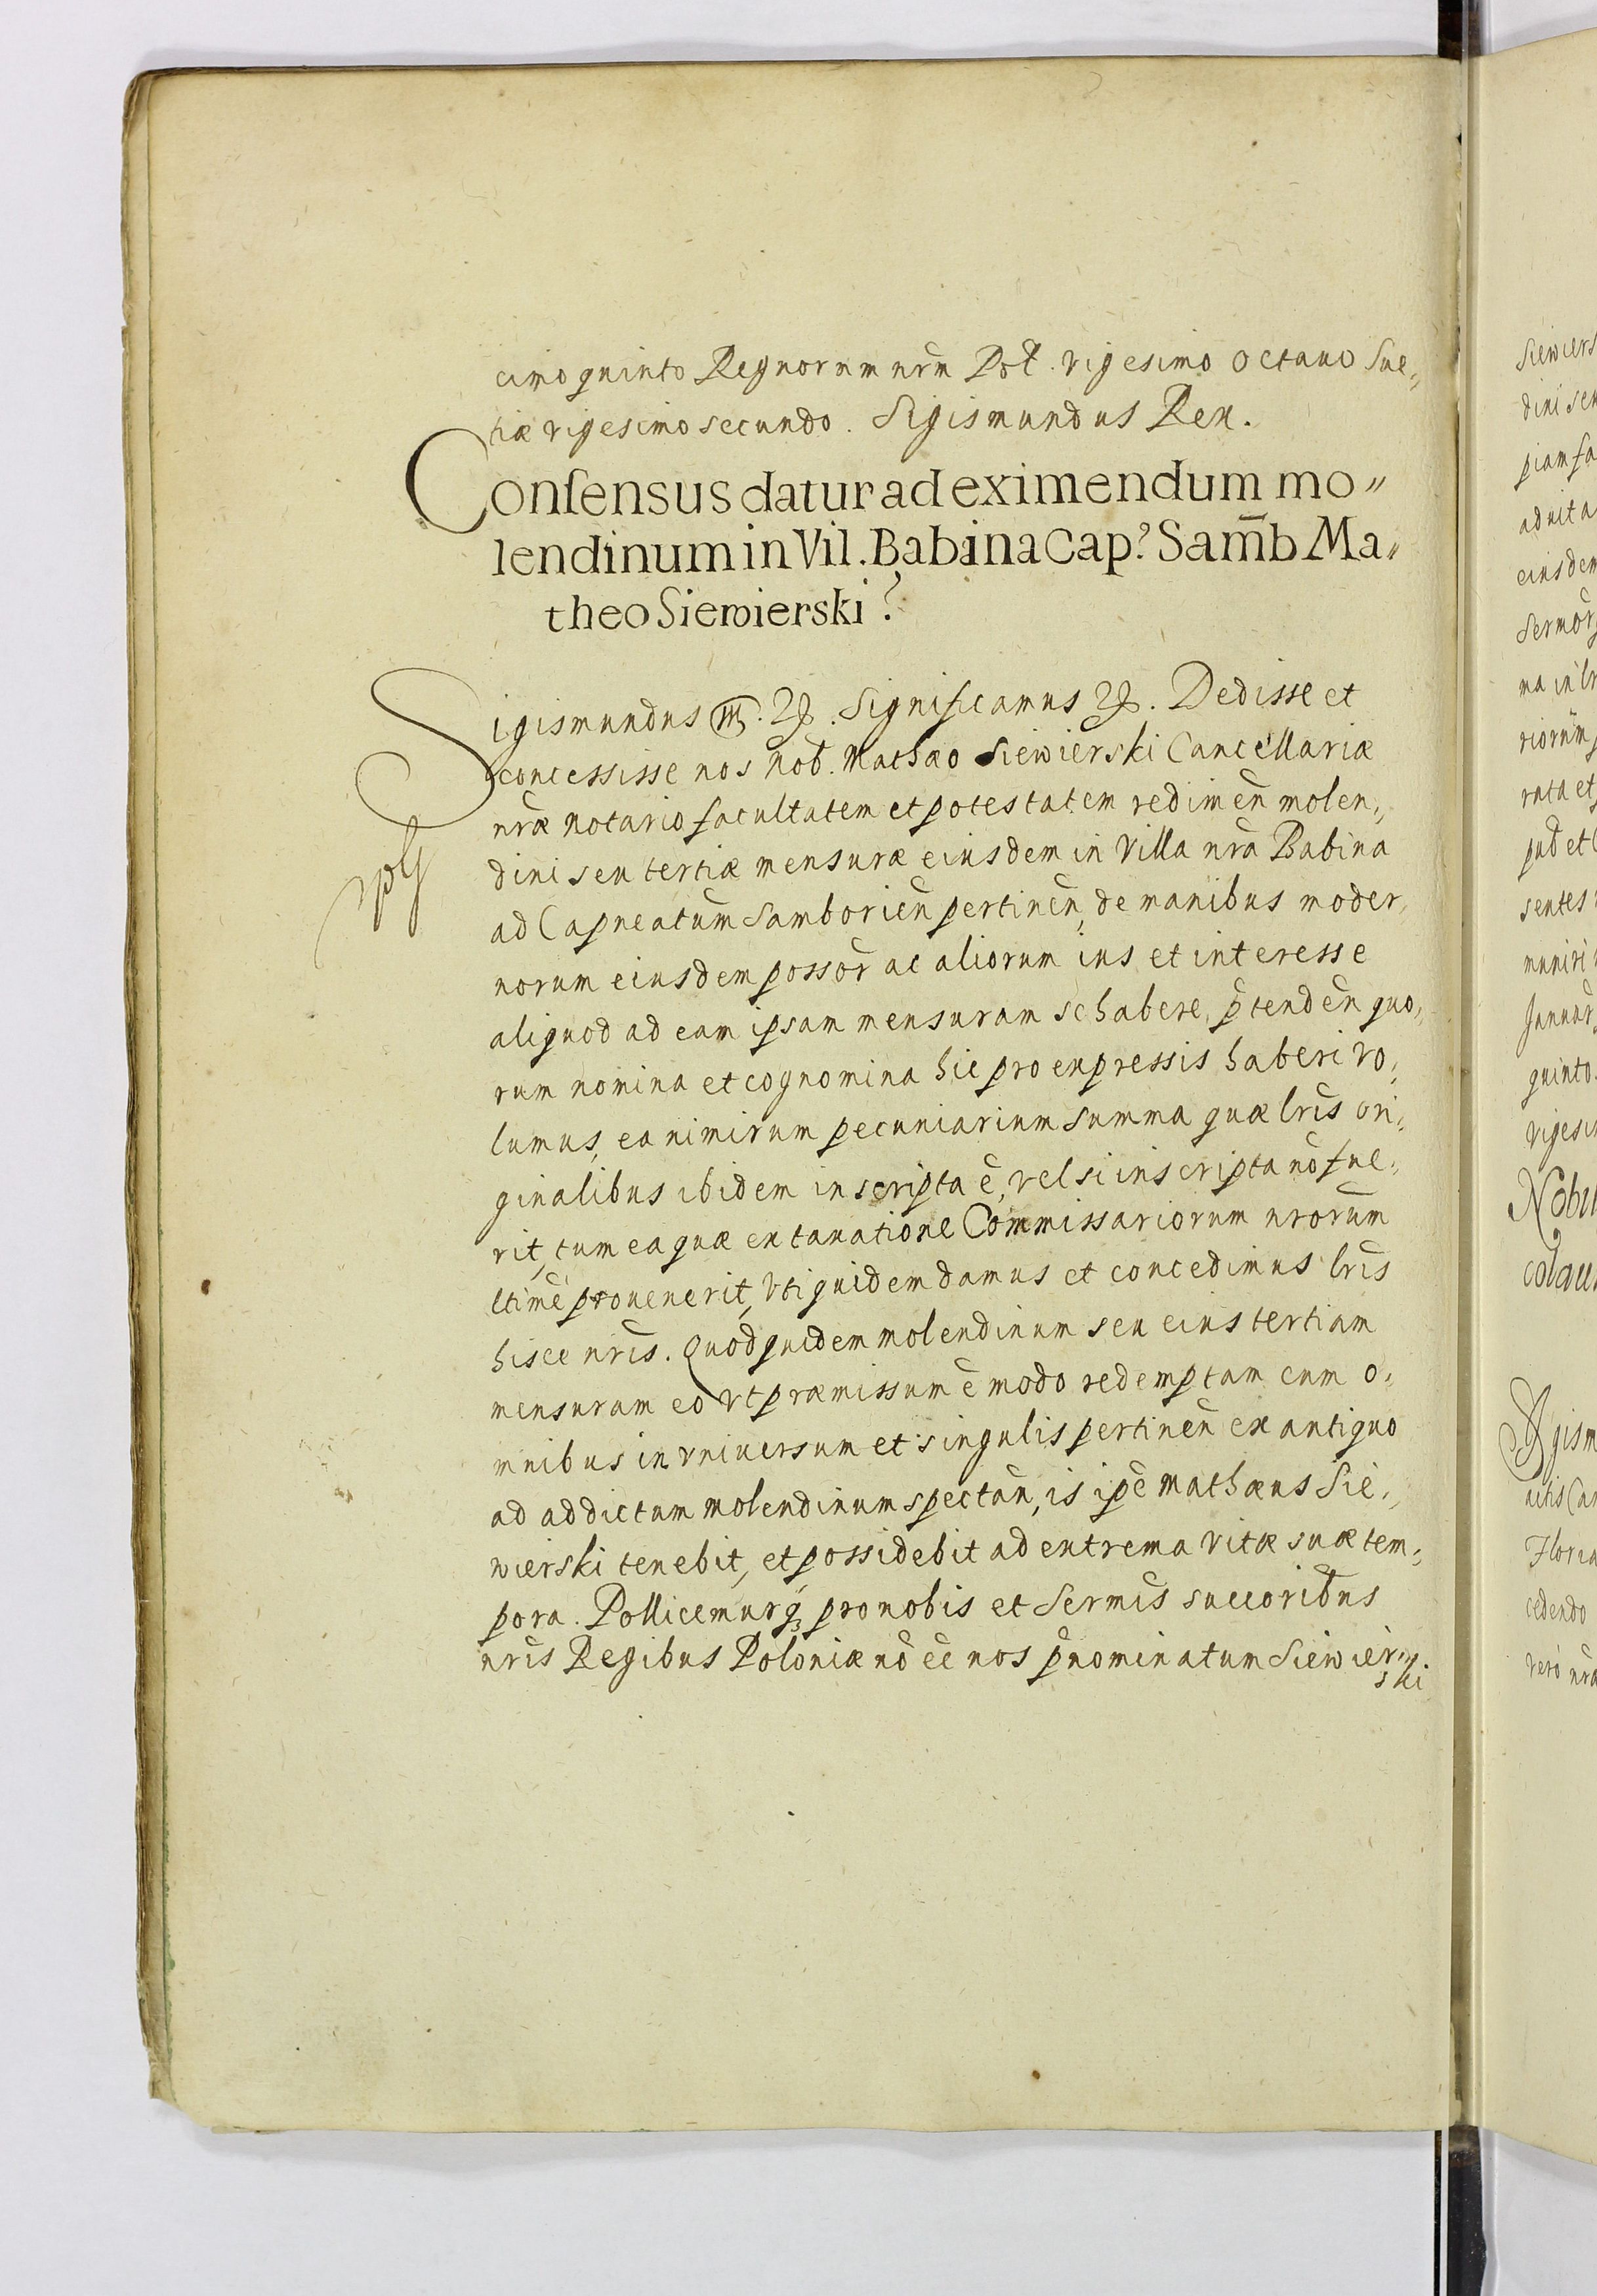 cimo quinto Regnorum nrm̄ Pol. vigesimo octauo Sue„
tiæ vigesimo secundo. Sigismundus Rex.
Consensus datur ad eximendum mo„
lendinum in Vil. Babina Cap. Sam̄b Ma„
theo Siewierski
Sigismundus III. Significamus Dedisse et
concessisse nos Nob. Mathæo Siewierski Cancellariæ
nr̄æ notario facultatem et potestatem redimēn molen„
dini seu tertiæ mensuræ eiusdem in Villa nr̄a Babina
ad Capneatum Samboriēn pertinēn, de manibus moder„
norum eiusdem possōr ac aliorum ius et interesse
aliquod ad eam ipsam mensuram se habere p̄tendēn quo„
rum nomina et cognomina hic pro expressis haberi vo„
lumus, ea nimirum pecuniarium summa quæ lr̄is ori„
ginalibus ibidem inscripta ē, vel si inscripta nō fue„
rit, tum ea quæ ex taxatione Commissariorum nrorūm
ltimē prouenerit, Vti quidem damus et concedimus lr̄is
hisce nr̄is. Quod quidem molendinum seu eius tertiam
mensuram eo vt præmissum ē modo redemptam cum o„
mnibus in vniuersum et singulis pertinēn ex antiquo
ad addictum molendinum spectān, is ipē Mathæus Sie„
wierski tenebit, et possidebit ad extrema vitæ suæ tem„
pora. Pollicemurq; pro nobis et Sermīs succoribus
nr̄is Regibus Poloniæ nō eē nos p̄nominatum Siewier„
ski